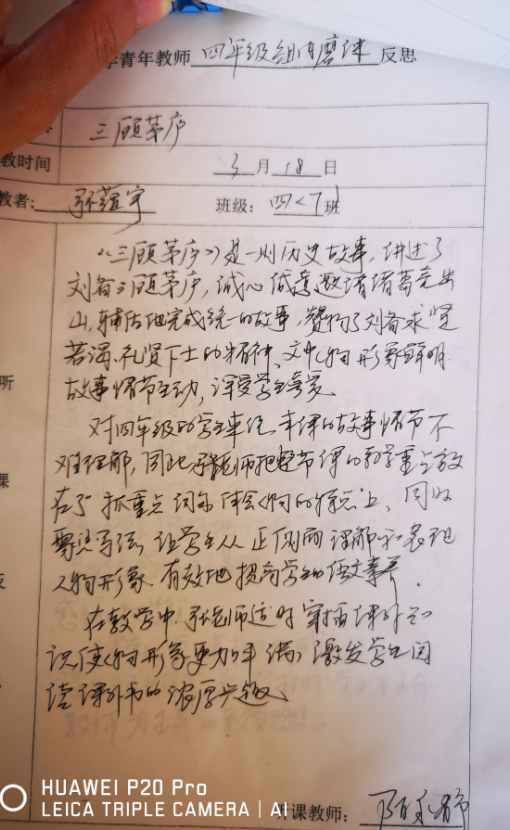 青年教师 四年级组内磨课 反思
三顾茅庐
教时间 3月18日
教者: 张 宇 班级: 四<7>班
《三顾茅庐》是一则历史故事,讲述了
刘备三顾茅庐,诚心诚意邀请诸葛亮出
山,辅佐他完成统一的故事,赞扬了刘备求贤
若渴、礼贤下士的精神。文中人物形象鲜明
故事情节生动,深受学生喜爱。
听
对四年级的学生来说,本课的故事情节不
难理解,因此张老师把整节课的教学重点放
课
在了抓重点词句体会人物的特点上,同时
聚焦写法,让学生从正侧面理解和表现
人物形象,有效地提高学生的语文素养。
在教学中,张老师适时穿插课外知
识使人物形象更加丰满,激发学生阅
读课外书的浓厚兴趣。
听课教师: 陈 静
HUAWEI P20 Pro
LEICA TRIPLE CAMERA | AI